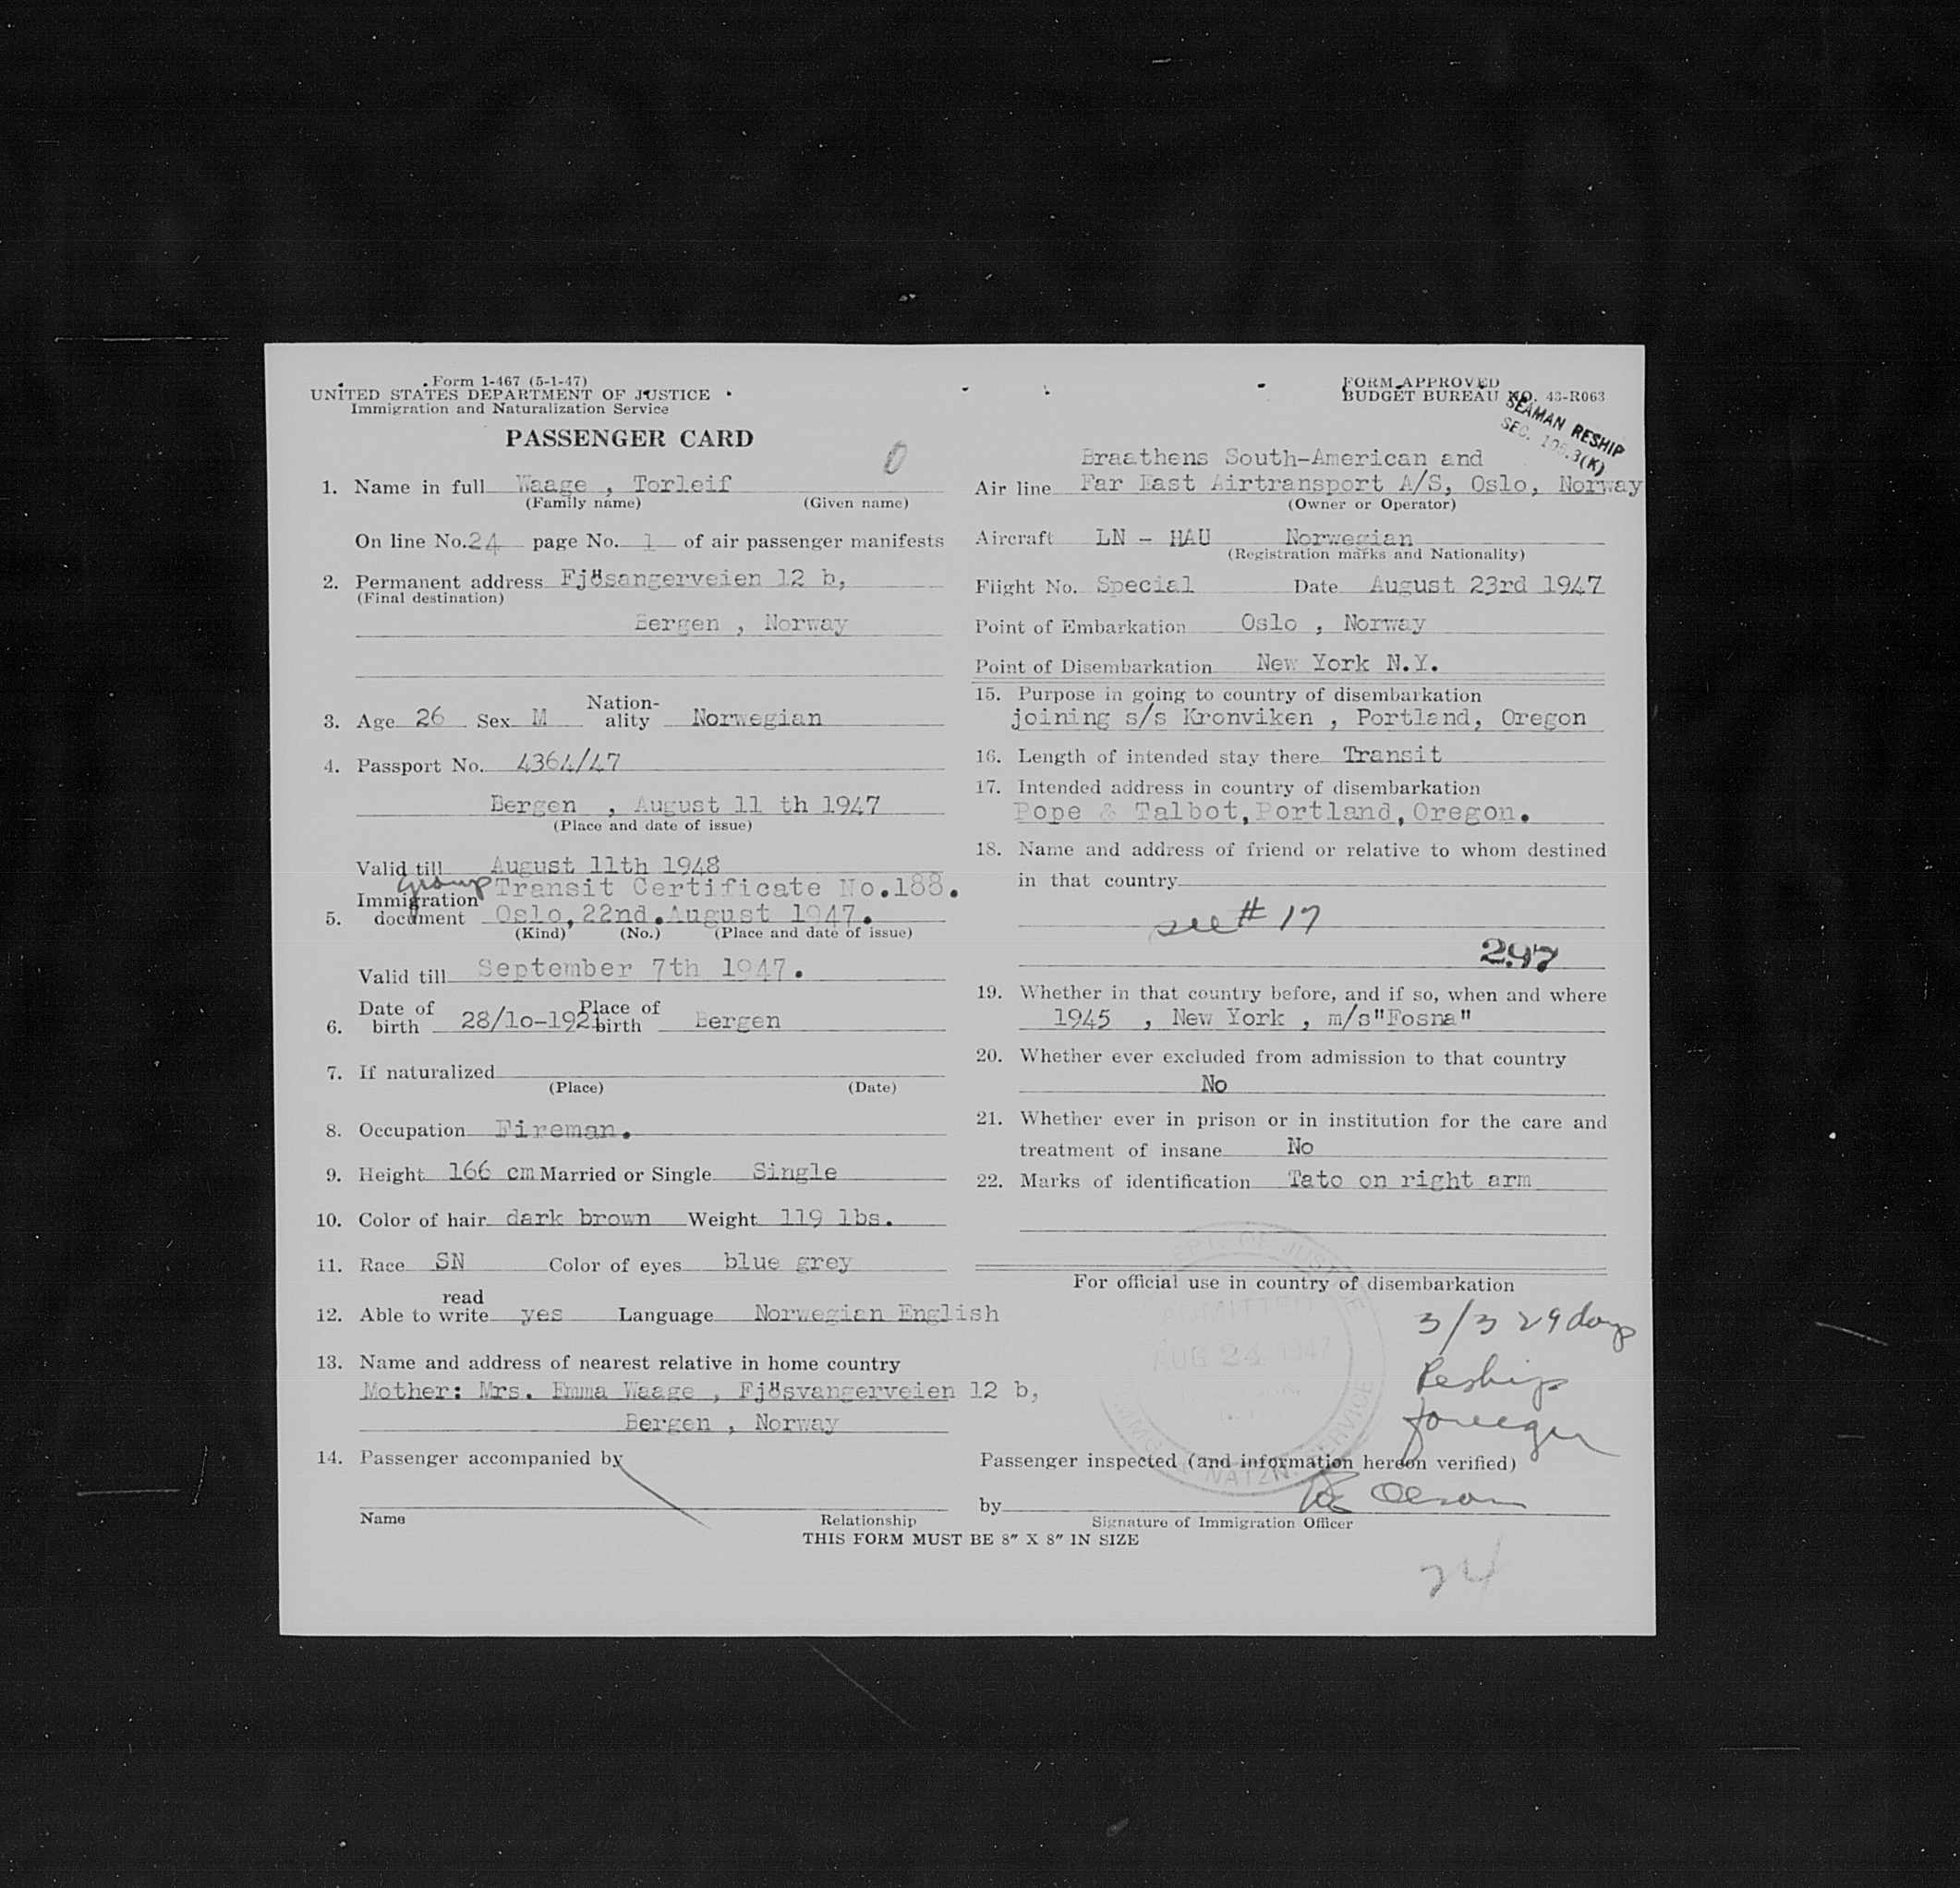 Form 1-467 (5-1-47)
UNITED STATES DEPARTMENT OF JUSTICE
Immigration and Naturalization Service
PASSENGER CARD
0
1. Name in full Waage , Torleif
(Family name) (Given name)
On line No. 24 page No. 1 of air passenger manifests
2. Permanent address Fjösangerveien 12 b,
(Final destination)
Bergen , Norway
3. Age 26 Sex M Nation-ality Norwegian
4. Passport No. 4364/47
Bergen , August 11 th 1947
(Place and date of issue)
Valid till August 11th 1948
group Transit Certificate No.188.
5. Immigration document Oslo,22nd.August 1947.
(Kind) (No.) (Place and date of issue)
Valid till September 7th 1947.
6. Date of birth 28/10-1921 Place of birth Bergen
7. If naturalized
(Place) (Date)
8. Occupation Fireman.
9. Height 166 cm Married or Single Single
10. Color of hair dark brown Weight 119 lbs.
11. Race SN Color of eyes blue grey
12. Able to read write yes Language Norwegian English
13. Name and address of nearest relative in home country
Mother: Mrs. Emma Waage , Fjösvangerveien 12 b,
Bergen , Norway
14. Passenger accompanied by
Name Relationship
FORM APPROVED
BUDGET BUREAU NO. 43-R063
SEAMAN RESHIP
SEC. 105.3(K)
Braathens South-American and
Air line Far East Airtransport A/S, Oslo, Norway
(Owner or Operator)
Aircraft LN - HAU Norwegian
(Registration marks and Nationality)
Flight No. Special Date August 23rd 1947
Point of Embarkation Oslo , Norway
Point of Disembarkation New York N.Y.
15. Purpose in going to country of disembarkation
joining s/s Kronviken , Portland, Oregon
16. Length of intended stay there Transit
17. Intended address in country of disembarkation
Pope & Talbot,Portland,Oregon.
18. Name and address of friend or relative to whom destined
in that country
see # 17
297
19. Whether in that country before, and if so, when and where
1945 , New York , m/s"Fosna"
20. Whether ever excluded from admission to that country
No
21. Whether ever in prison or in institution for the care and
treatment of insane No
22. Marks of identification Tato on right arm
For official use in country of disembarkation
DEPT. OF JUSTICE
ADMITTED
AUG 24 1947
NATZN. SERVICE
3/3 29 days
Reship
foreign
Passenger inspected (and information hereon verified)
by Olson
Signature of Immigration Officer
THIS FORM MUST BE 8" X 8" IN SIZE
24